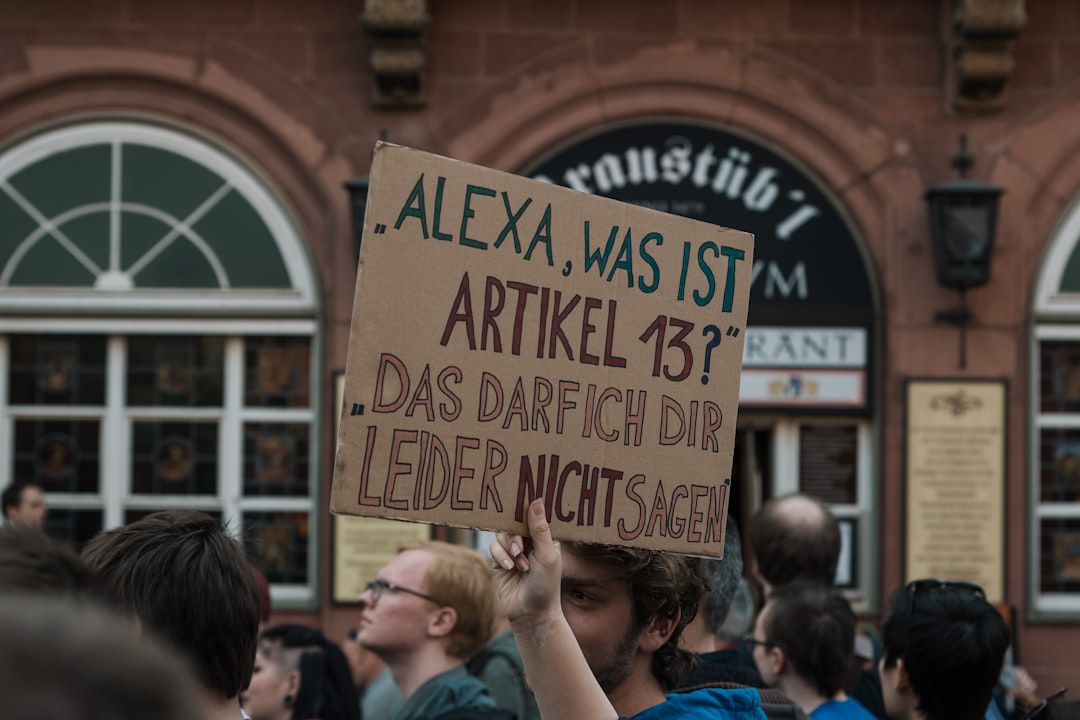 „ALEXA, WAS IST
ARTIKEL 13?“
„DAS DARF ICH DIR
LEIDER NICHT SAGEN“